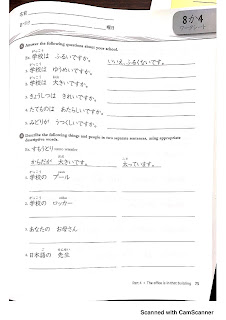 名前
8か4
ワークシート
Answer the following questions about your school.
Ex. 学校は ふるいですか。 いいえ、ふるくないです。
1. 学校は ゆうめいですか。
2. 学校は 大きいですか。
3. きょうしつは きれいですか。
4. たてものは あたらしいですか。
5. みどりが うつくしいですか。
Describe the following things and people in two separate sentences, using appropriate descriptive words.
Ex. すもうとり
からだが 大きいです。 太っています。
1. 学校の プール
2. 学校の ロッカー
3. あなたの お母さん
4. 日本語の 先生
The office is in that building 75
Scanned with CamScanner